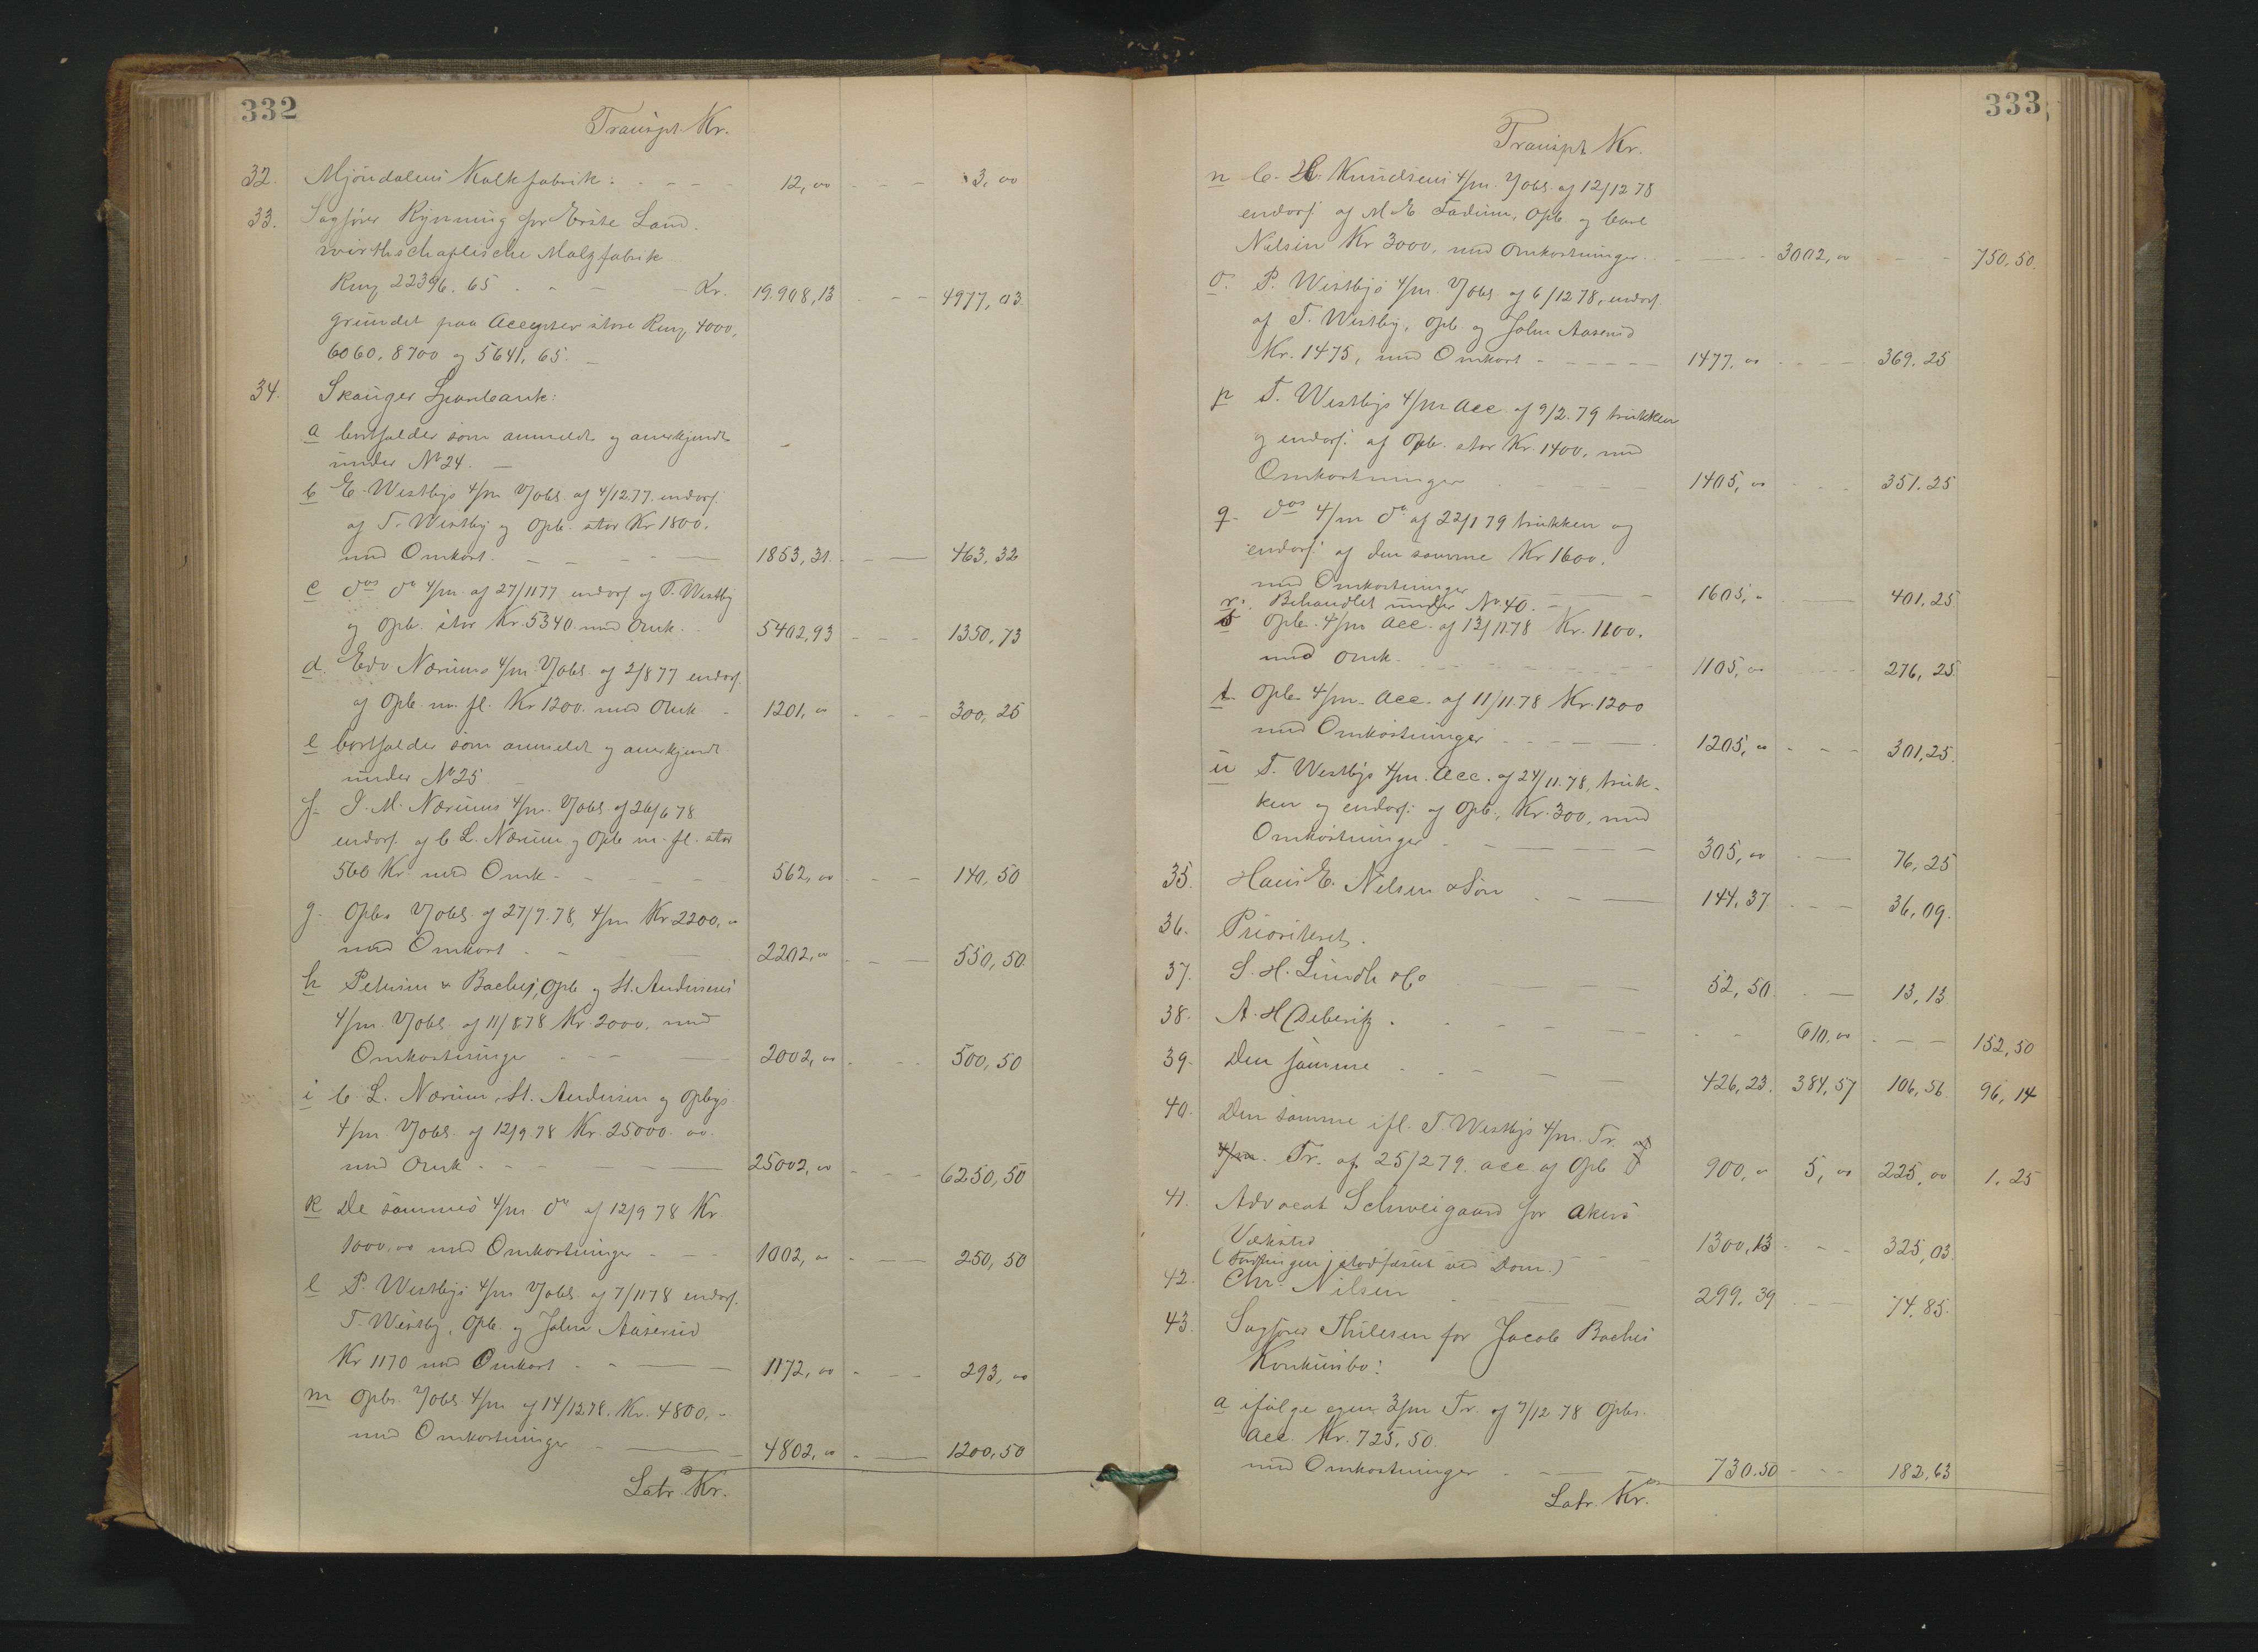 332
Transpt Kr.
32. Mjöndalens Kalkfabrik: 12,00 3,00
33. Sagförer Rynning for Erste Land-
wirthschaftliche Malzfabrik
Rmz 22396.65 Kr. 19.908,13 4977,03
grundet paa Accepter store Rmz 4000,
6060, 8700 og 5641,65.
34. Skauger Sparebank:
a bortfalder som anmeldt og anerkjendt
under No 24.
b E. Westbys 4/m Vobl. af 4/12 77 endors.
af T. Westby og Opb. stor Kr 1800.
med Omkost. 1853,31 463,32
c dos do 4/m af 27/11 77 endors. af T. Westby
og Opb. stor Kr. 5340 med Omk. 5402,93 1350,73
d. Edv. Nærums 4/m Vobl. af 2/8 77 endors.
af Opb. m. fl. Kr 1200. med Omk. 1201,00 300,25
e bortfalder som anmeldt og anerkjendt
under No 25.
f. I. M. Nærums 4/m. Vobl. af 26/6 78
endors. af C. L. Nærum og Opb m. fl. stor
560 Kr. med Omk. 562,00 140,50
g. Opbs Vobl. af 27/7.78, 4/m Kr 2200,00
med Omkost. 2202,00 550,50
h Petersen & Baches, Opb og St. Andersens
4/m. Vobl. af 11/8 78 Kr. 2000, med
Omkostninger 2002,00 500,50
i C. L. Nærum, St. Andersen og Opbgs.
4/m. Vobl. af 12/9 78 Kr. 25000.00.
med Omk. 25002,00 6250,50
k De sammes 4/m. do af 12/9 78 Kr.
1000,00 med Omkostninger 1002,00 250,50
l P. Westbys 4/m Vobl. af 7/11 78 endors.
T. Westby, Opb. og Johan Aaserud
Kr 1170 med Omkost. 1172,00 293,00
m Opbs. Vobl. 4/m af 14/12 78. Kr. 4800,00
med Omkostninger 4802,00 1200,50
Latr. Kr.
333
Transpt Kr.
n C. H. Knudsens 4/m. Vobl. af 12/12 78
endors. af M E Fadum, Opb. og Carl
Nielsen Kr 3000, med Omkostninger 3002,00 750,50.
o. P. Westbys 4/m. Vobl. af 6/12 78, endors.
af T. Westby, Opb. og Johan Aaserud
Kr. 1475, med Omkost. 1477,00 369.25
p T. Westbys 4/m Acc. af 9/2.79 trukken
og endors. af Opb. stor Kr. 1400, med
Omkostninger 1405,00 351.25
q. dos 4/m do af 22/1 79 trukken og
endors. af den samme Kr 1600.
med Omkostninger 1605,00 401,25
r. Behandlet under No. 40.
s Opb. 4/m Acc. af 13/11.78 Kr. 1100.
med Omk. 1105,00 276,25
t. Opb. 4/m. Acc. af 11/11.78 Kr. 1200
med Omkostninger 1205,00 301,25.
u T. Westbys 4/m. Acc. af 24/11.78, truk-
ken og endors. af Opb., Kr. 300, med
Omkostninger 305,00 76,25
35. Hans E. Nilsen & Søn 144,37 36,09.
36. Prioriteret.
37. S. H. Lundh & Co 52,50 13,13
38. A. H Deberitz. 610,00 152,50
39. Den samme 426,23. 384,57 106,56 96,14
40. Den samme ifl. T. Westbys 4/m. Tr. af
4/m. Tr. af 25/2 79. acc. af Opb 900,00 5,00 225,00 1.25
41. Advocat Schweigaard for Akers
Værksted 1300,13 325,03.
(Fordringen stadfæstet ved Dom.)
42. Chr. Nilsen 299,39 74,85.
43. Sagförer Thulesen for Jacob Baches
Konkursbo:
a ifølge egen 3/m Tr. af 9/12 78 Opbs.
Acc. Kr. 725,50.
med Omkostninger 730.50 182,63
Latr. Kr.